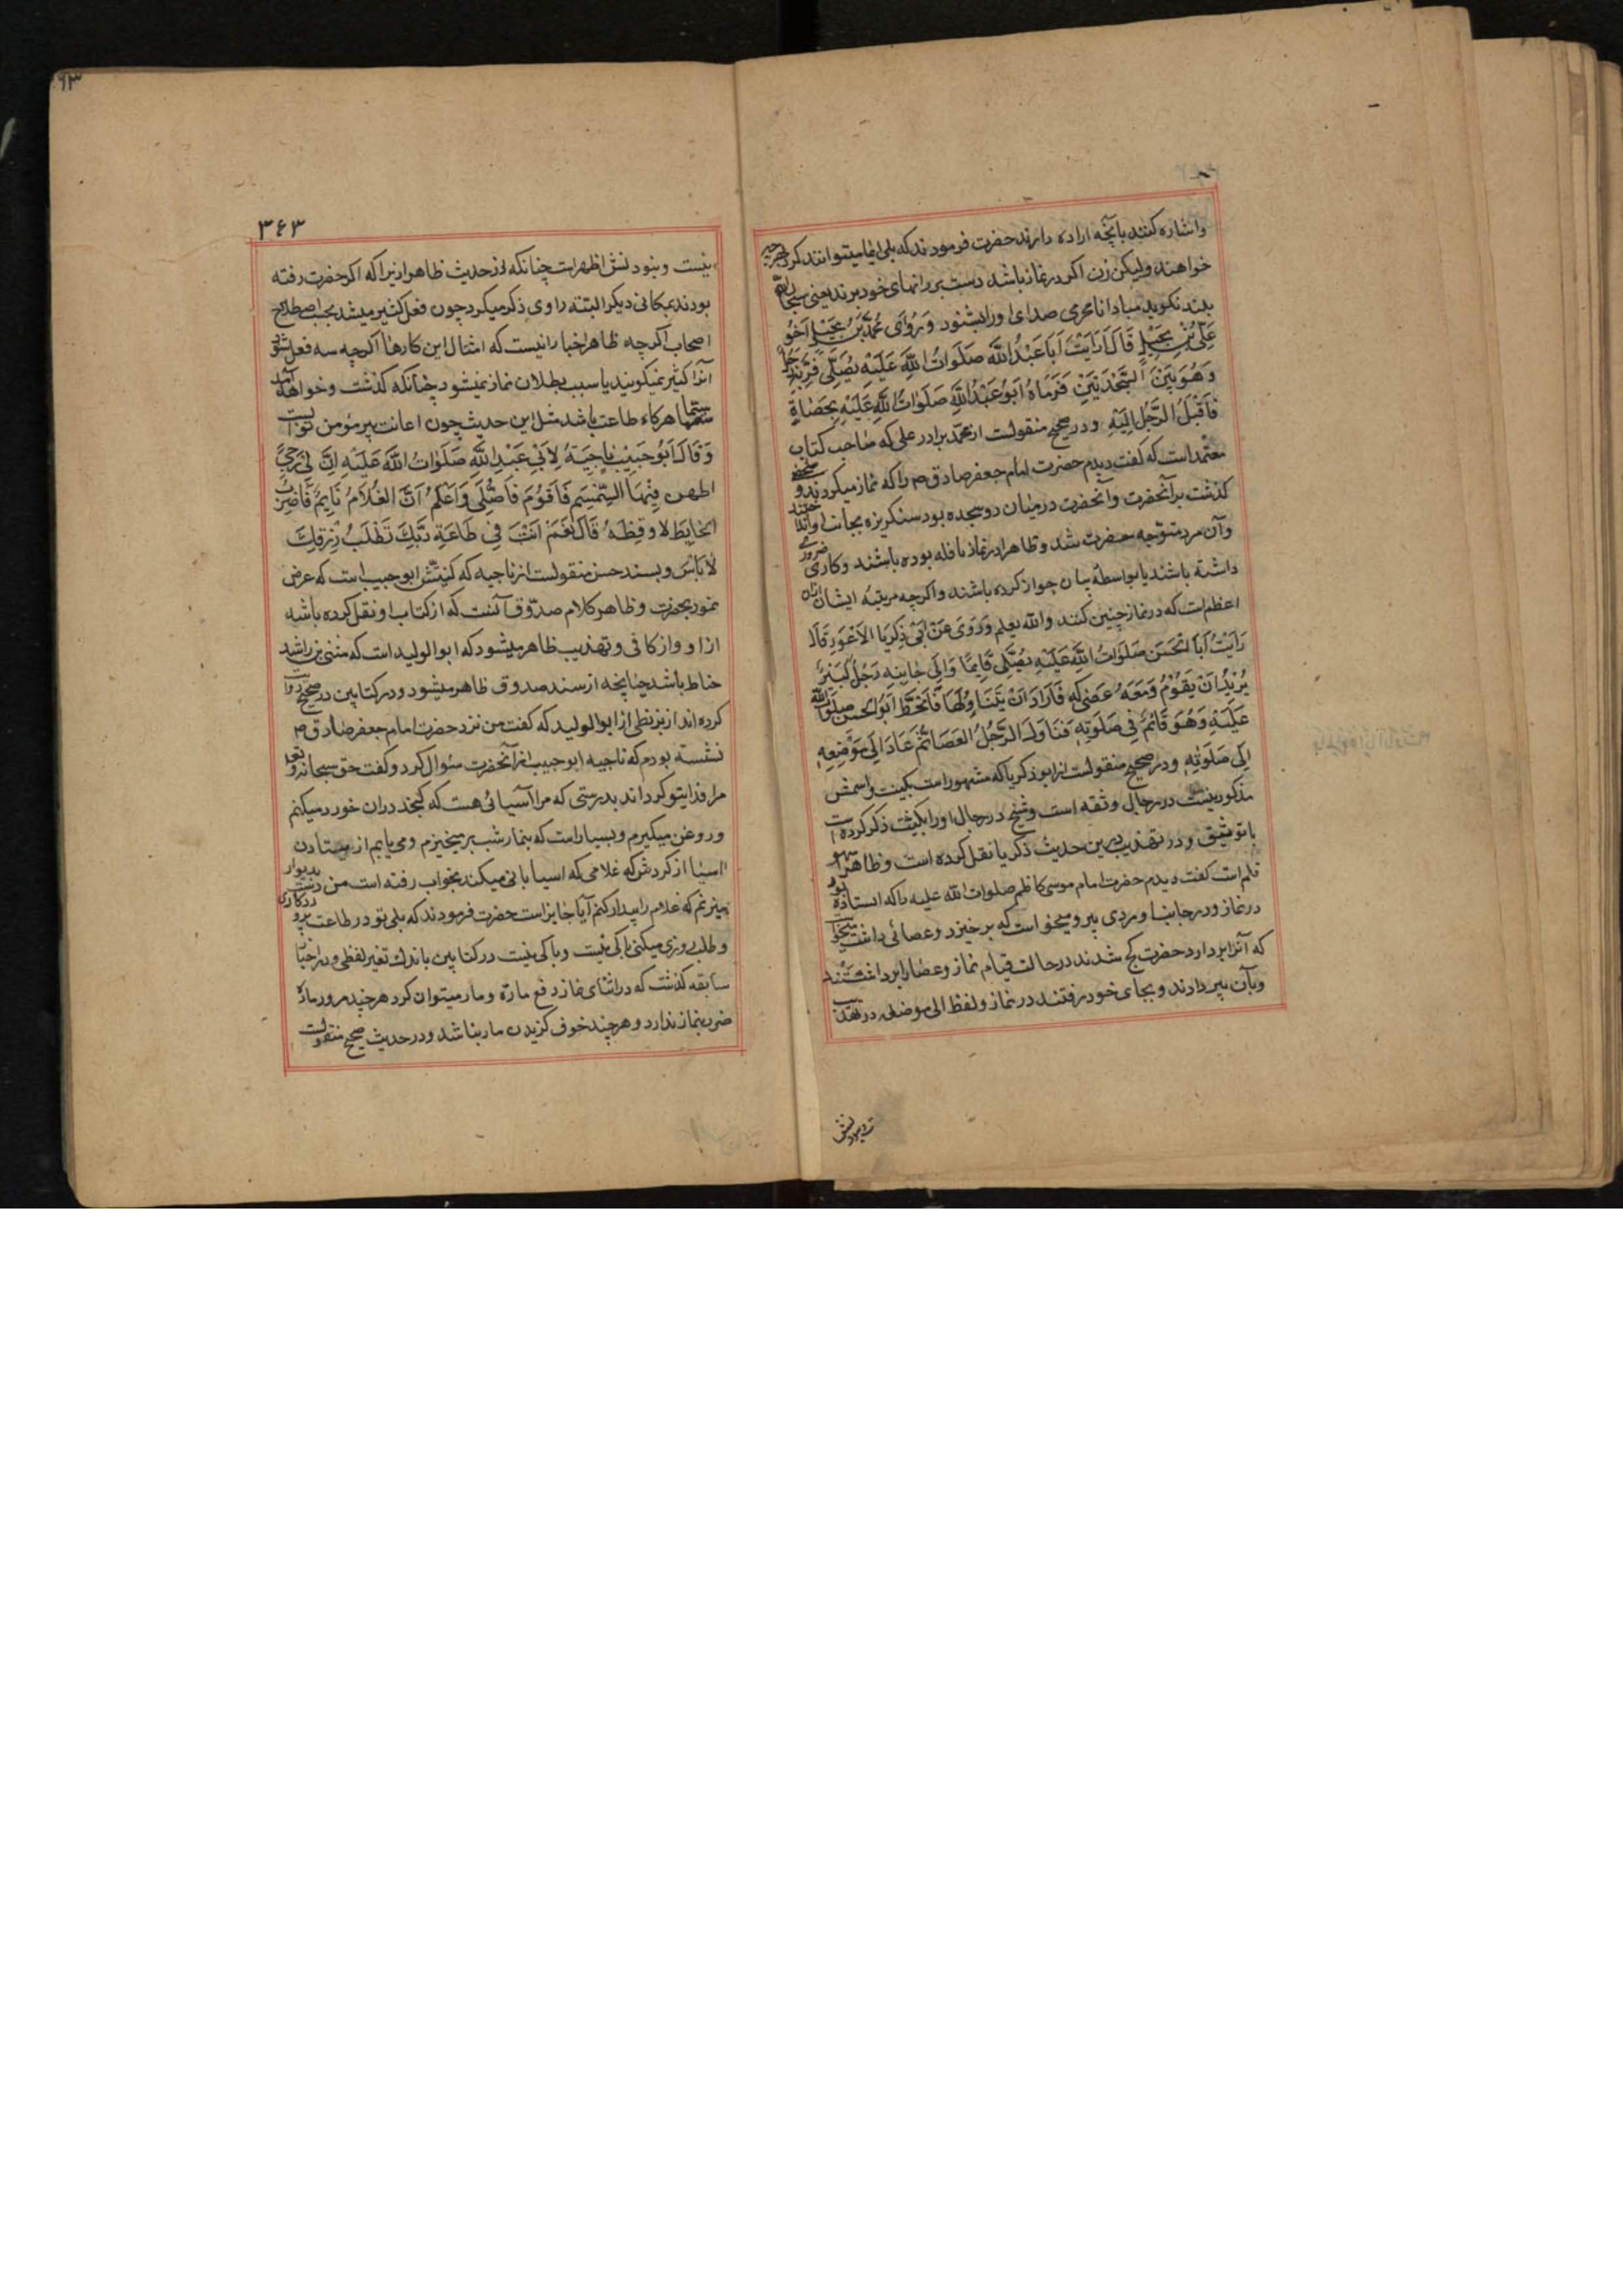 واشاره کنند بآنچه اراده دارند حضرت فرمودند که بلی ایما میتوانند کرد بهر چیز
خواهند ولیکن زن اکر در نماز باشد دست بر رانهای خود برند یعنی سبحان الله
بلند نکوید مبادا نامحرمی صدای او را بشنود وَرُوِیَ مُحَمَّدُ بْنُ بَجِیْلٍ اَخُو
عَلِیِّ بْنِ بَجِیْلٍ قَالَ رَاَیْتُ اَبَا عَبْدِ اللّٰهِ صَلَوَاتُ اللّٰهِ عَلَیْهِ یُصَلِّی فَمَرَّ بِهِ رَجُلٌ
وَهُوَ بَیْنَ السَّجْدَتَیْنِ فَرَمَاهُ اَبُو عَبْدِ اللّٰهِ صَلَوَاتُ اللّٰهِ عَلَیْهِ بِحَصَاةٍ
فَاَقْبَلَ الرَّجُلُ اِلَیْهِ ودر صحیح منقولست از محمد برادر علی که صاحب کتاب
معتمد است که کفت دیدم حضرت امام جعفر صادق ص را که نماز میکردند و شخصی
کذشت بر آنحضرت وآنحضرت درمیان دو سجده بود سنکریزه بجانب او انداختند
وآن مرد متوجه حضرت شد وظاهرا در نماز نافله بوده باشند وکاری ضروری
داشته باشند یا بواسطهٔ بیان جواز کرده باشند واکرچه مرتبهٔ ایشان ازان
اعظم است که در نماز چنین کنند والله یعلم وَرَوَی عَنْ اَبِی زَکَرِیَّا الاَعْوَرِ قَالَ
رَاَیْتُ اَبَا الْحَسَنِ صَلَوَاتُ اللّٰهِ عَلَیْهِ یُصَلِّی قَائِمًا وَاِلَی جَانِبِهِ رَجُلٌ کَبِیْرٌ
یُرِیْدُ اَنْ یَقُوْمَ وَمَعَهُ عَصًی لَهُ فَاَرَادَ اَنْ یَتَنَاوَلَهَا فَانْحَطَّ اَبُو الْحَسَنِ صَلَوَاتُ اللّٰهِ
عَلَیْهِ وَهُوَ قَائِمٌ فِی صَلَوتِهِ فَنَاوَلَ الرَّجُلَ الْعَصَا ثُمَّ عَادَ اِلَی مَوْضِعِهِ
اِلَی صَلَوتِهِ ودر صحیح منقولست از ابو زکریا که مشهور است بکنیت واسمش
مذکور نیست در رجال وثقه است وشیخ در رجال او را بکنیت ذکر کرده است
با توثیق ودر تهذیب درین حدیث زکریا نقل کرده است وظاهرا سهو
قلم است کفت دیدم حضرت امام موسی کاظم صلوات الله علیه را که ایستاده بود
در نماز ودر جانب او مردی پیر ومیخواست که برخیزد وعصائی داشت میخواست
که آنرا بردارد حضرت کج شدند در حالت قیام نماز وعصا را برداشتند
وبآن پیر دادند وبجای خود رفتند در نماز ولفظ الی موضعه در تهذیب
نیست وبنودنش
۳۶۳
نیست ونبودنش اظهر است چنانکه از حدیث ظاهر از زیرا که اکر حضرت رفته
بودند بمکانی دیکر البته راوی ذکر میکرد چون فعل کثیر میشد بحسب اصطلاح
اصحاب اکرچه ظاهر اخبار انیست که امثال این کارها اکرچه سه فعل شود
آنرا کثیر نمیکویند یا سبب بطلان نماز نمیشود چنانکه کذشت وخواهد آمد
سیّما هرکاه طاعت باشد مثل این حدیث چون اعانت پیر مؤمن ثوابست
وَقَالَ اَبُو حَبِیْبٍ نَاجِیَةُ لِاَبِی عَبْدِ اللّٰهِ صَلَوَاتُ اللّٰهِ عَلَیْهِ اِنَّ لِی رَحًی
اطحن فِیْهَا السِّمْسِمَ فَاَقُوْمُ فَاُصَلِّی وَاَعْلَمُ اَنَّ الغُلَامَ نَایِمٌ فَاَضْرِبُ
الحَایِطَ لاوقِظَهُ قَالَ نَعَمْ اَنْتَ فِی طَاعَةِ رَبِّکَ تَطْلُبُ رِزْقَکَ
لاَبَاْسَ وبسند حسن منقولست از ناجیه که کنیتش ابو حبیب است که عرض
نمود بحضرت وظاهر کلام صدّوق آنست که از کتاب او نقل کرده باشد
ازا و واز کافی وتهذیب ظاهر میشود که ابو الولید است که مثنی بن راشد
حناط باشد چنانچه از سند صدوق ظاهر میشود ودر کتابین در صحیح روایت
کرده اند از بزنطی از ابو الولید که کفت من نزد حضرت امام جعفر صادق ص
نشسته بودم که ناجیه ابو حبیب از آنحضرت سئوال کرد وکفت حق سبحانه وتعالی
مرا فدای تو کرداند بدرستی که مرا آسیائی هست که کنجد دران خورد میکنم
وروغن میکیرم وبسیار است که بنماز شب بر میخیزم ومی یابم از ایستادن
آسیا از کردش که غلامی که آسیابانی میکند بخواب رفته است من دست بدیوار
میزنم که غلام را بیدار کنم آیا جایز است حضرت فرمودند که بلی تو در طاعت پروردکاری
وطلب روزی میکنی باکی نیست وباکی نیست در کتابین باندک تغیر لفظی ودر اخبار
سابقه کذشت که در اثنای نماز دفع ماره ومار میتوان کرد هر چند مرور مارّه
ضرر بنماز ندارد وهر چند خوف کزیدن مار نباشد ودر حدیث صحیح منقولست